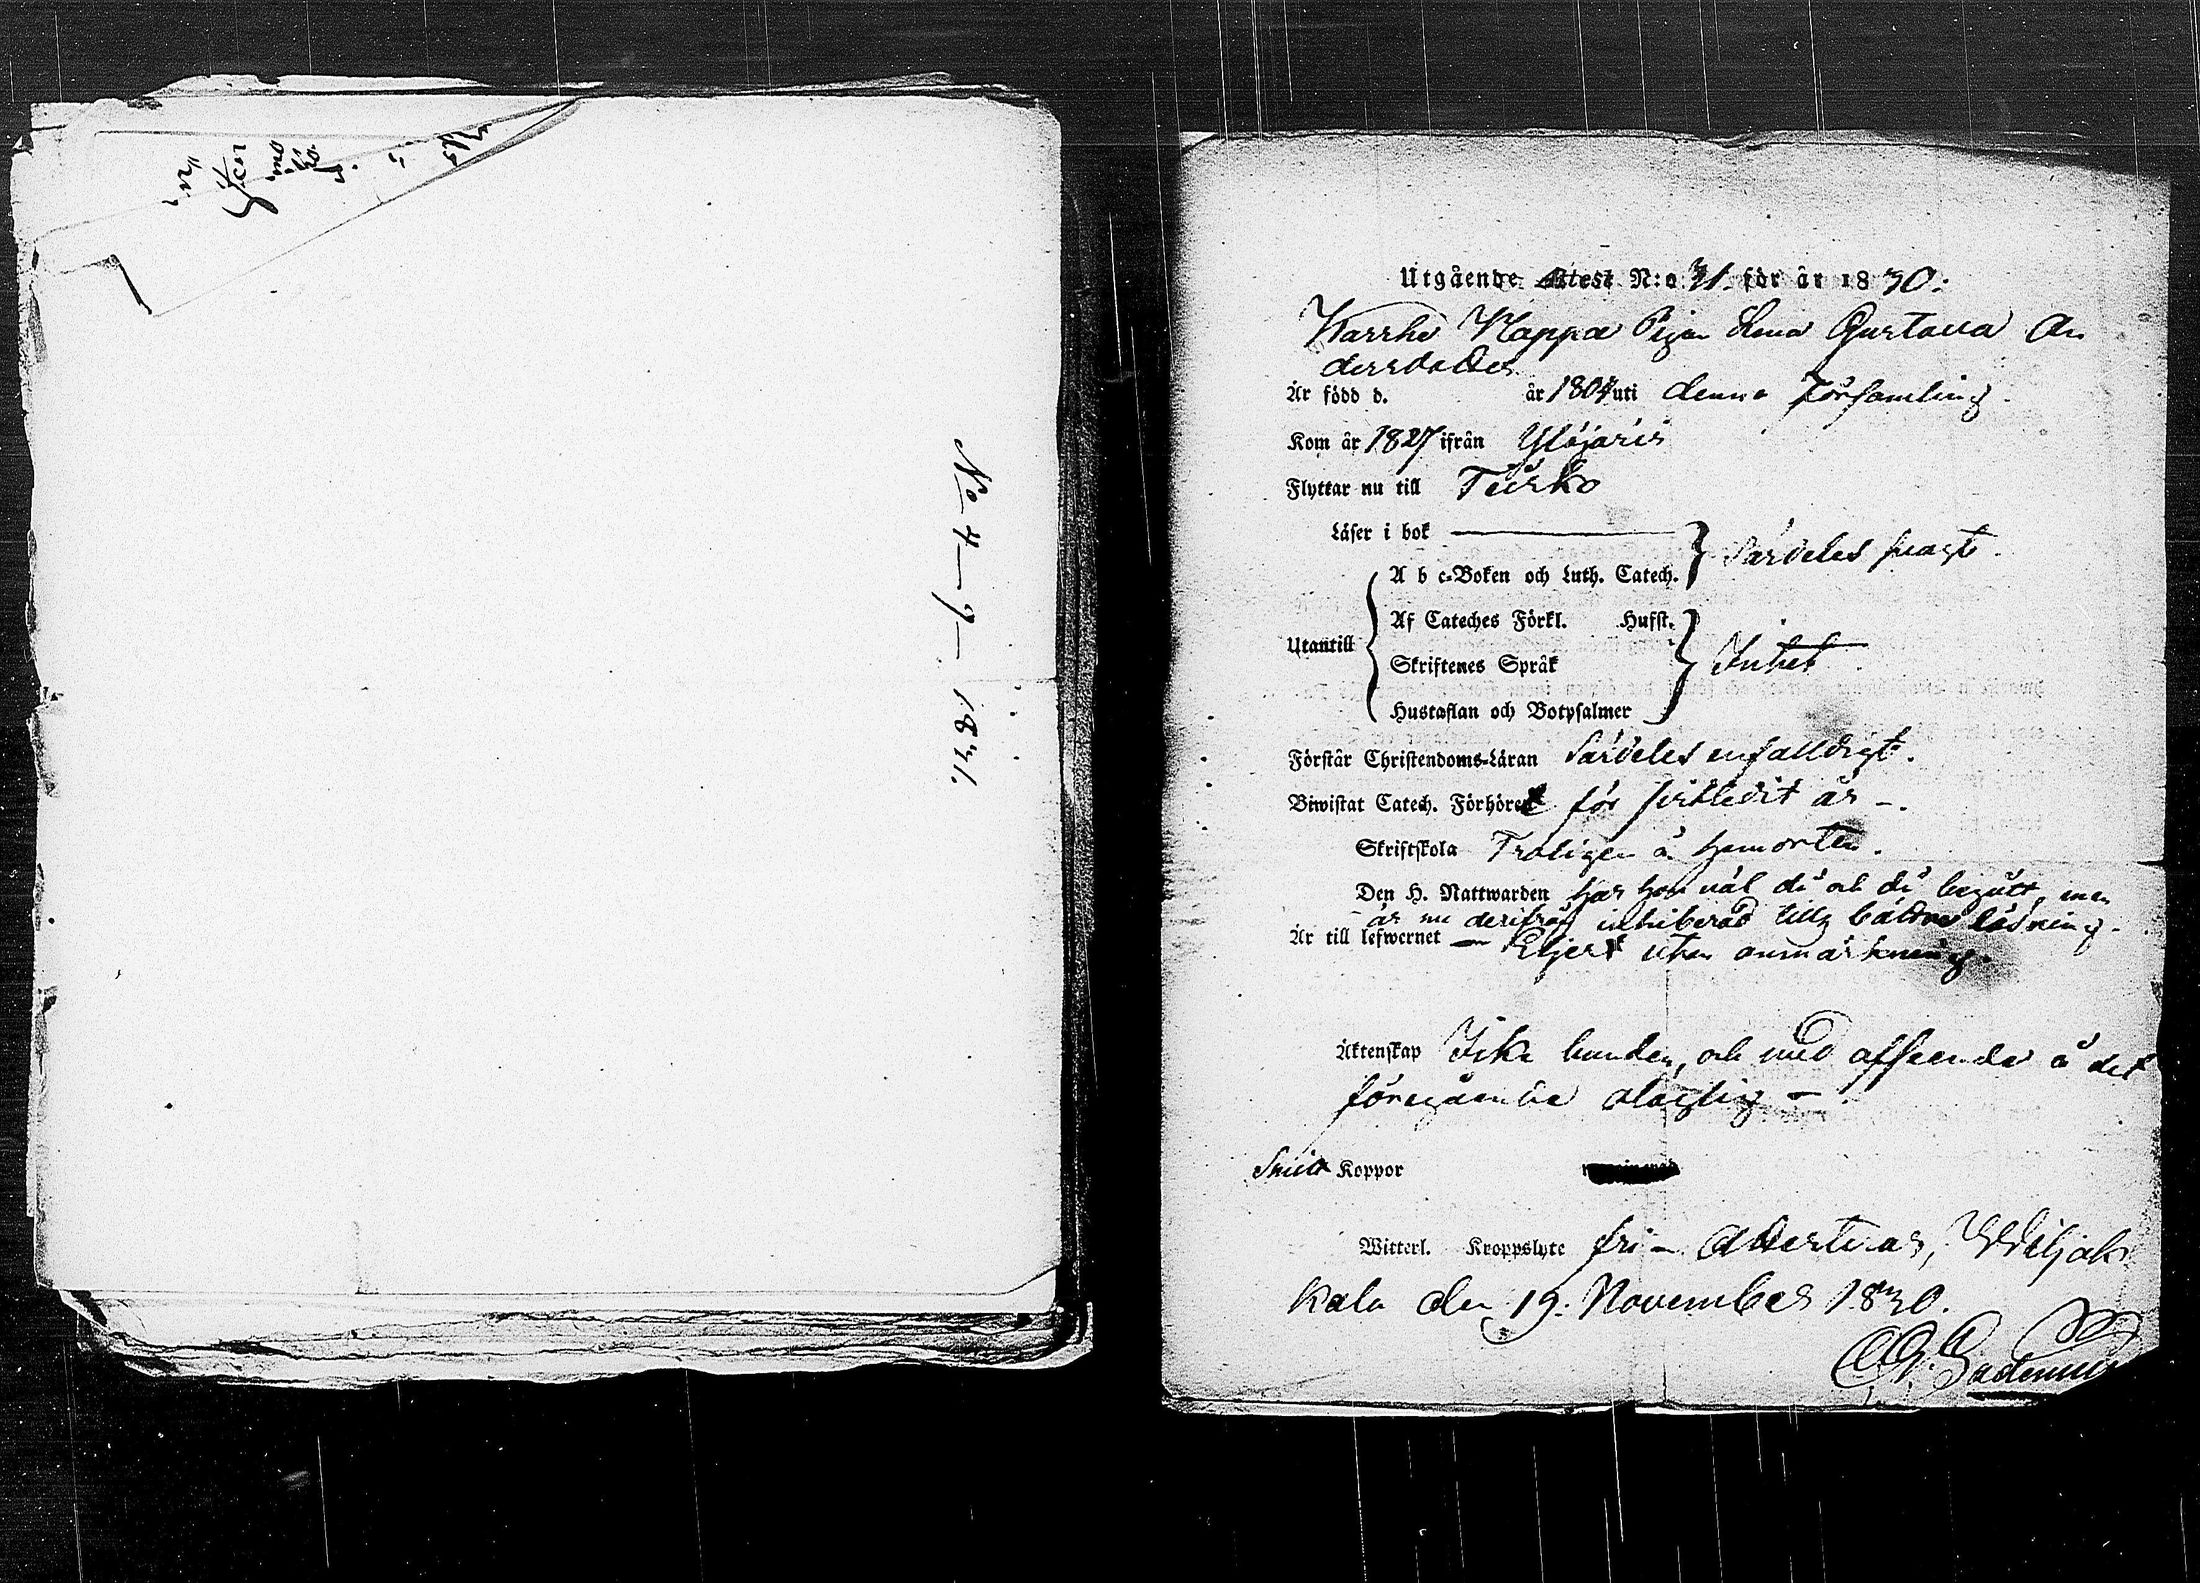 N:o 4 — 9 — 1831.
Utgående Attest N:o 31. för år 1830:
Warrho Nappa Pigan Lena Gustava An
dersdotter
Är född d. år 1804 uti denna Församling.
Kom år 1827 ifrån Ylöjäris
Flyttar nu till Tursko
Läser i bok
A b c-Boken och Luth. Catech. } Särdeles svagt.
Af Cateches Förkl. Hufst.
Utantill { Skriftenes Språk } Intet
Hustaflan och Botpsalmer
Förstår Christendoms-Läran Särdeles enfaldigt.
Biwistat Catech. Förhöret för sistledit år —.
Skriftskola Troligen å hemorten.
Den H. Nattwarden har hon väl då och då begått, men
är nu derifrån inhiberad till bättre läsning.
Är till lefwernet — Eljest utan anmärkning.
Äktenskap Icke bunden, och med afseende å det
föregående olaglig —.
Koppor
Witterl. Kroppslyte fri — Attesteras, Wiljak
kala den 19. November 1830.